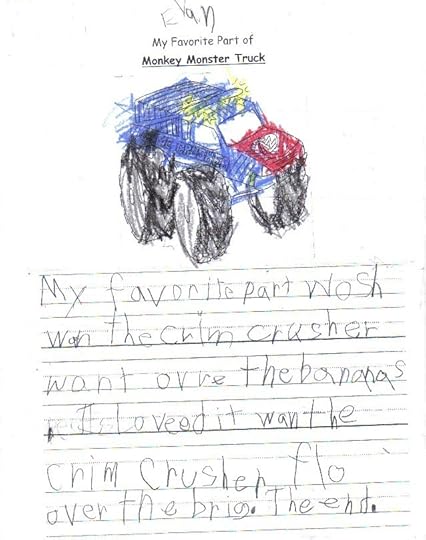 Evan
My Favorite Part of
Monkey Monster Truck
My favorite part wosh
wan the crim crusher
want ovre the bananas
. I loveed it wan the
crim Crusher flo
over the brig. The end.